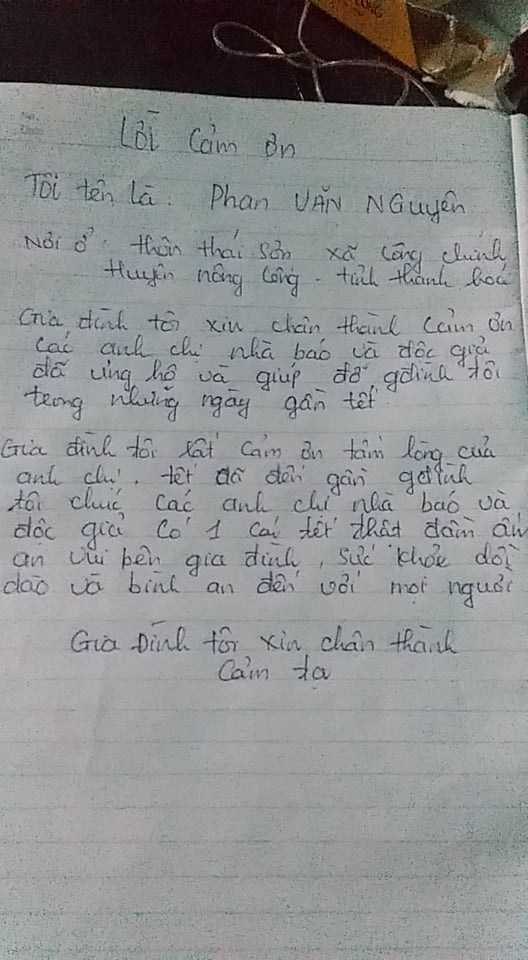 Lời cảm ơn
Tôi tên là: Phan VĂN NGuyên
Nơi ở: thôn thái sơn xã công chính
Huyện nông công - tỉnh thanh hoá
Gia đình tôi xin chân thành cảm ơn
các anh chị nhà báo và độc giả
đã ủng hộ và giúp đỡ gđình tôi
trong những ngày gần tết.
Gia đình tôi rất cảm ơn tấm lòng của
anh chị. tết đã đến gần gđình
tôi chúc các anh chị nhà báo và
độc giả có 1 cái tết thật đầm ấm
an vui bên gia đình, sức khỏe dồi
dào và bình an đến với mọi người
Gia Đình tôi xin chân thành
cảm tạ